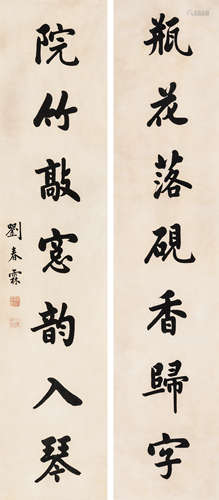 瓶花落硯香歸字
院竹敲窗韵入琴
劉春霖